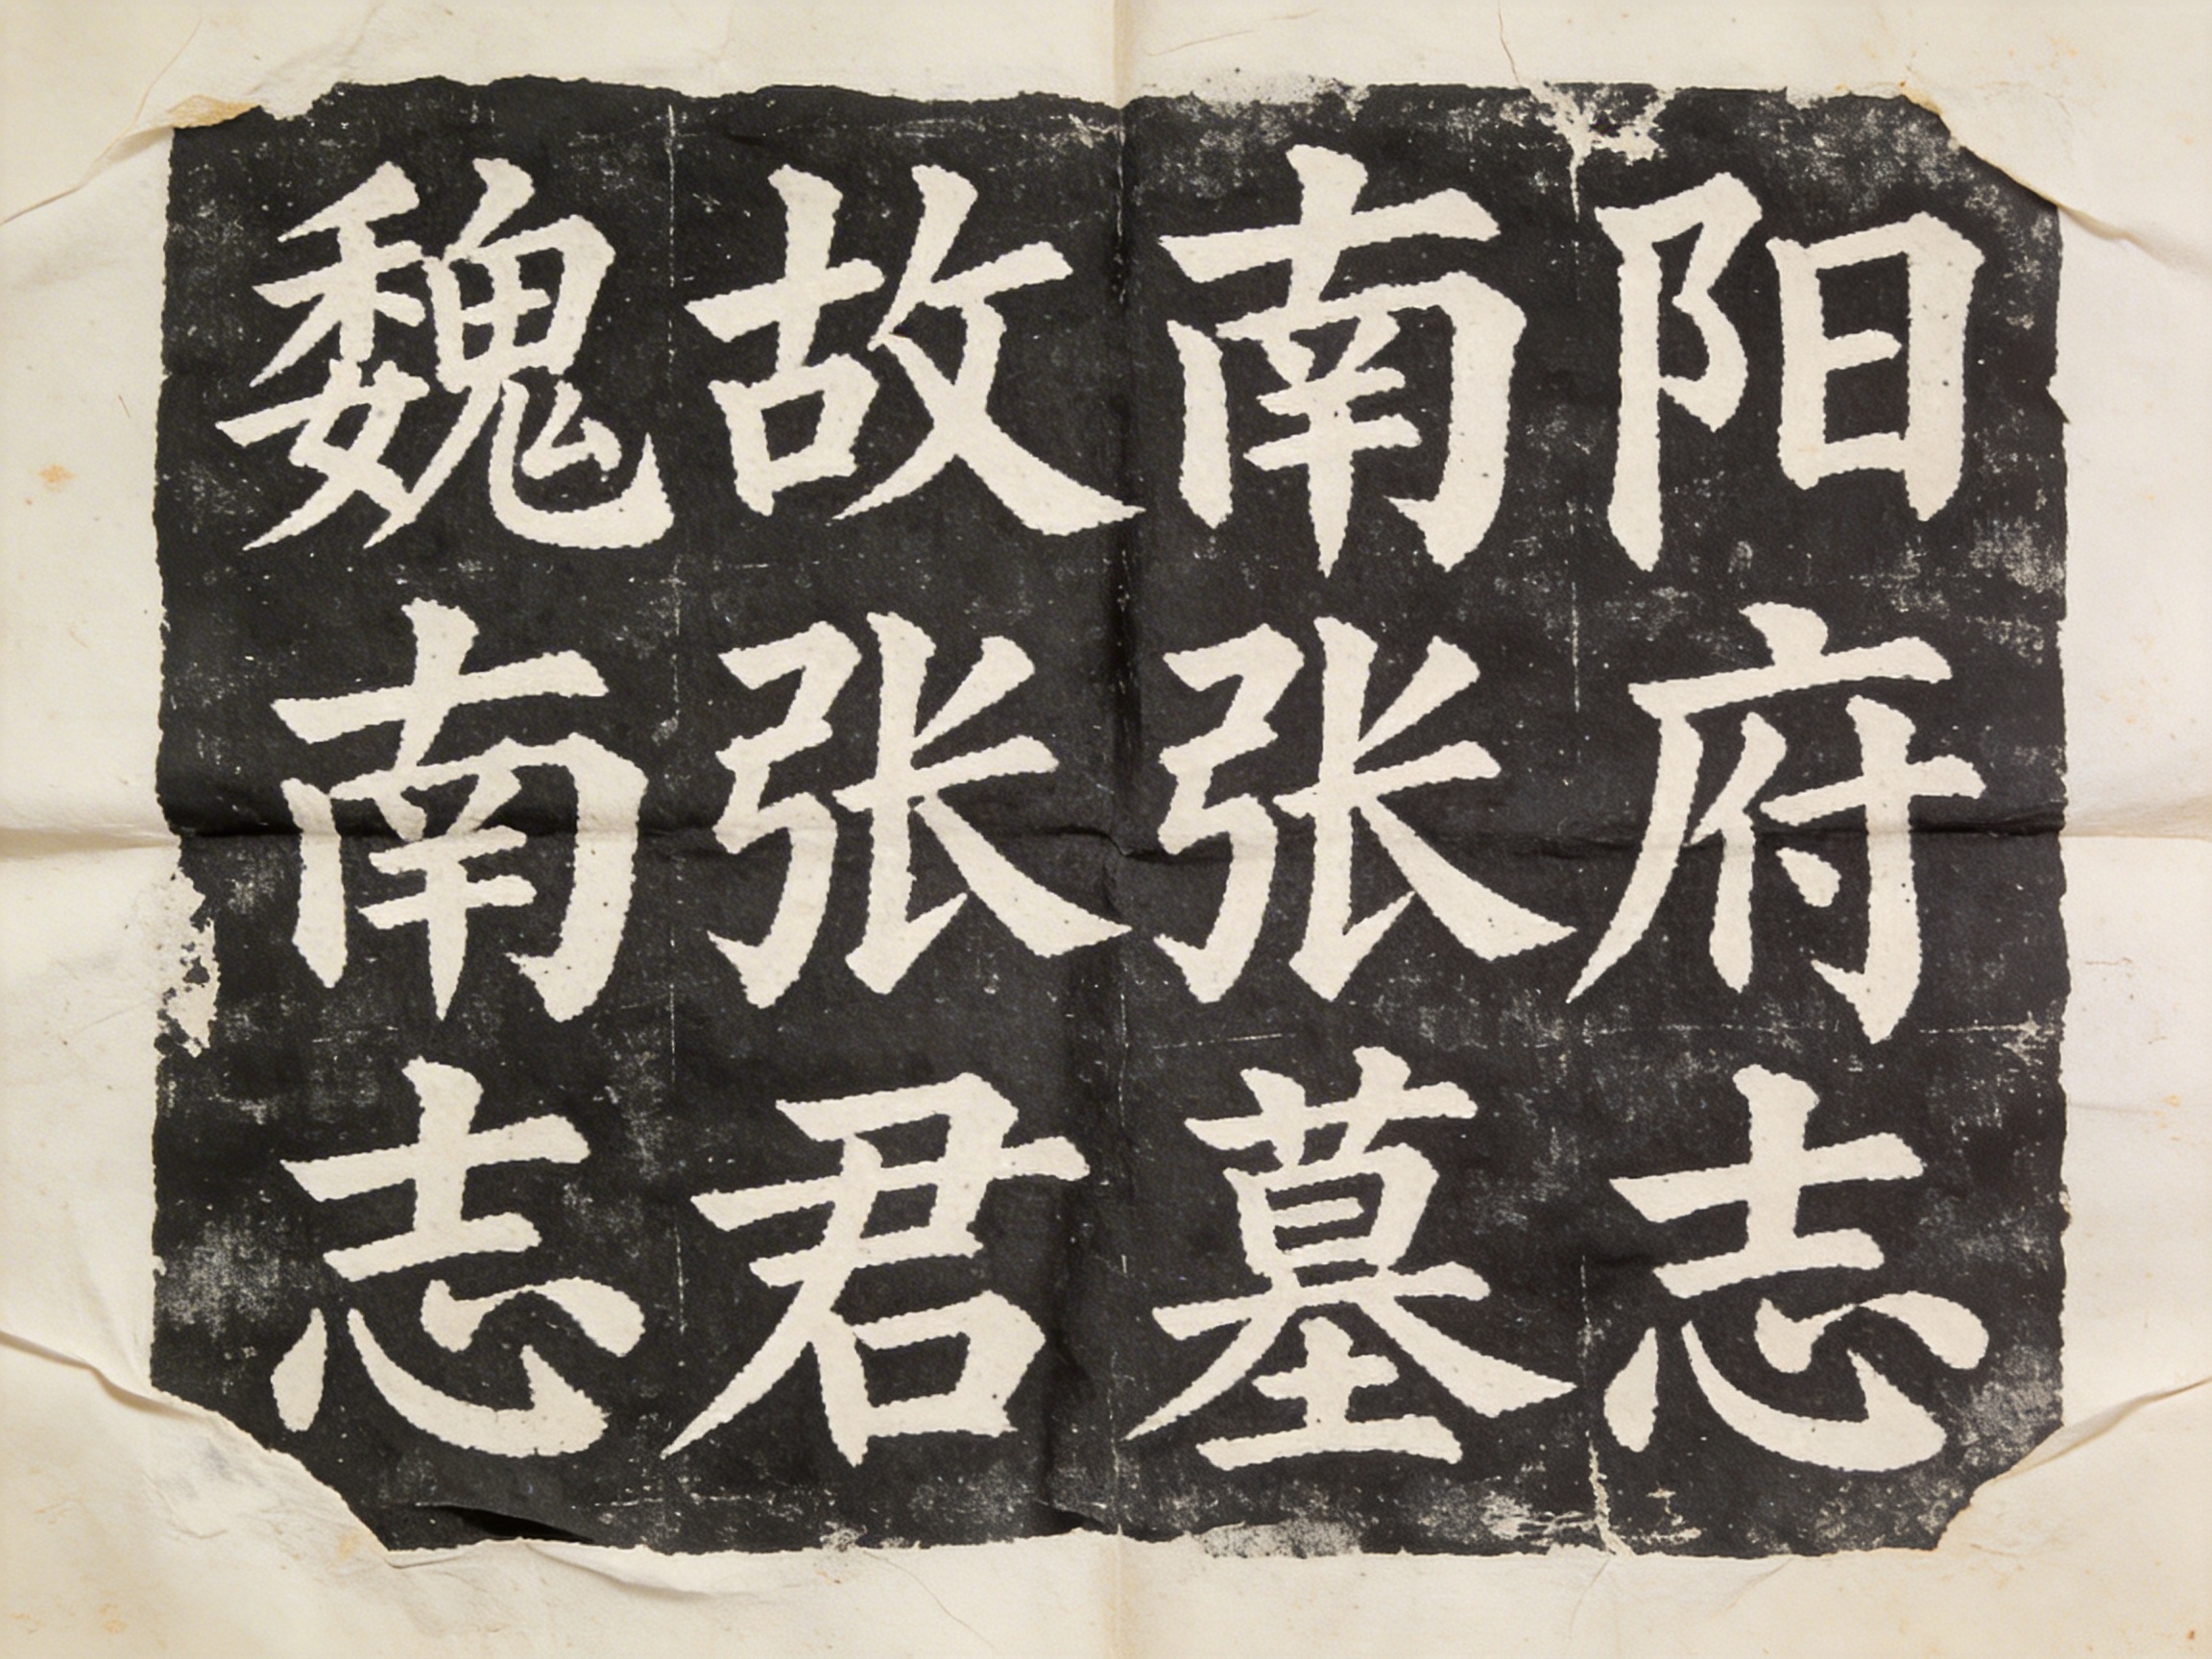 魏故南阳
南张张府
志君墓志